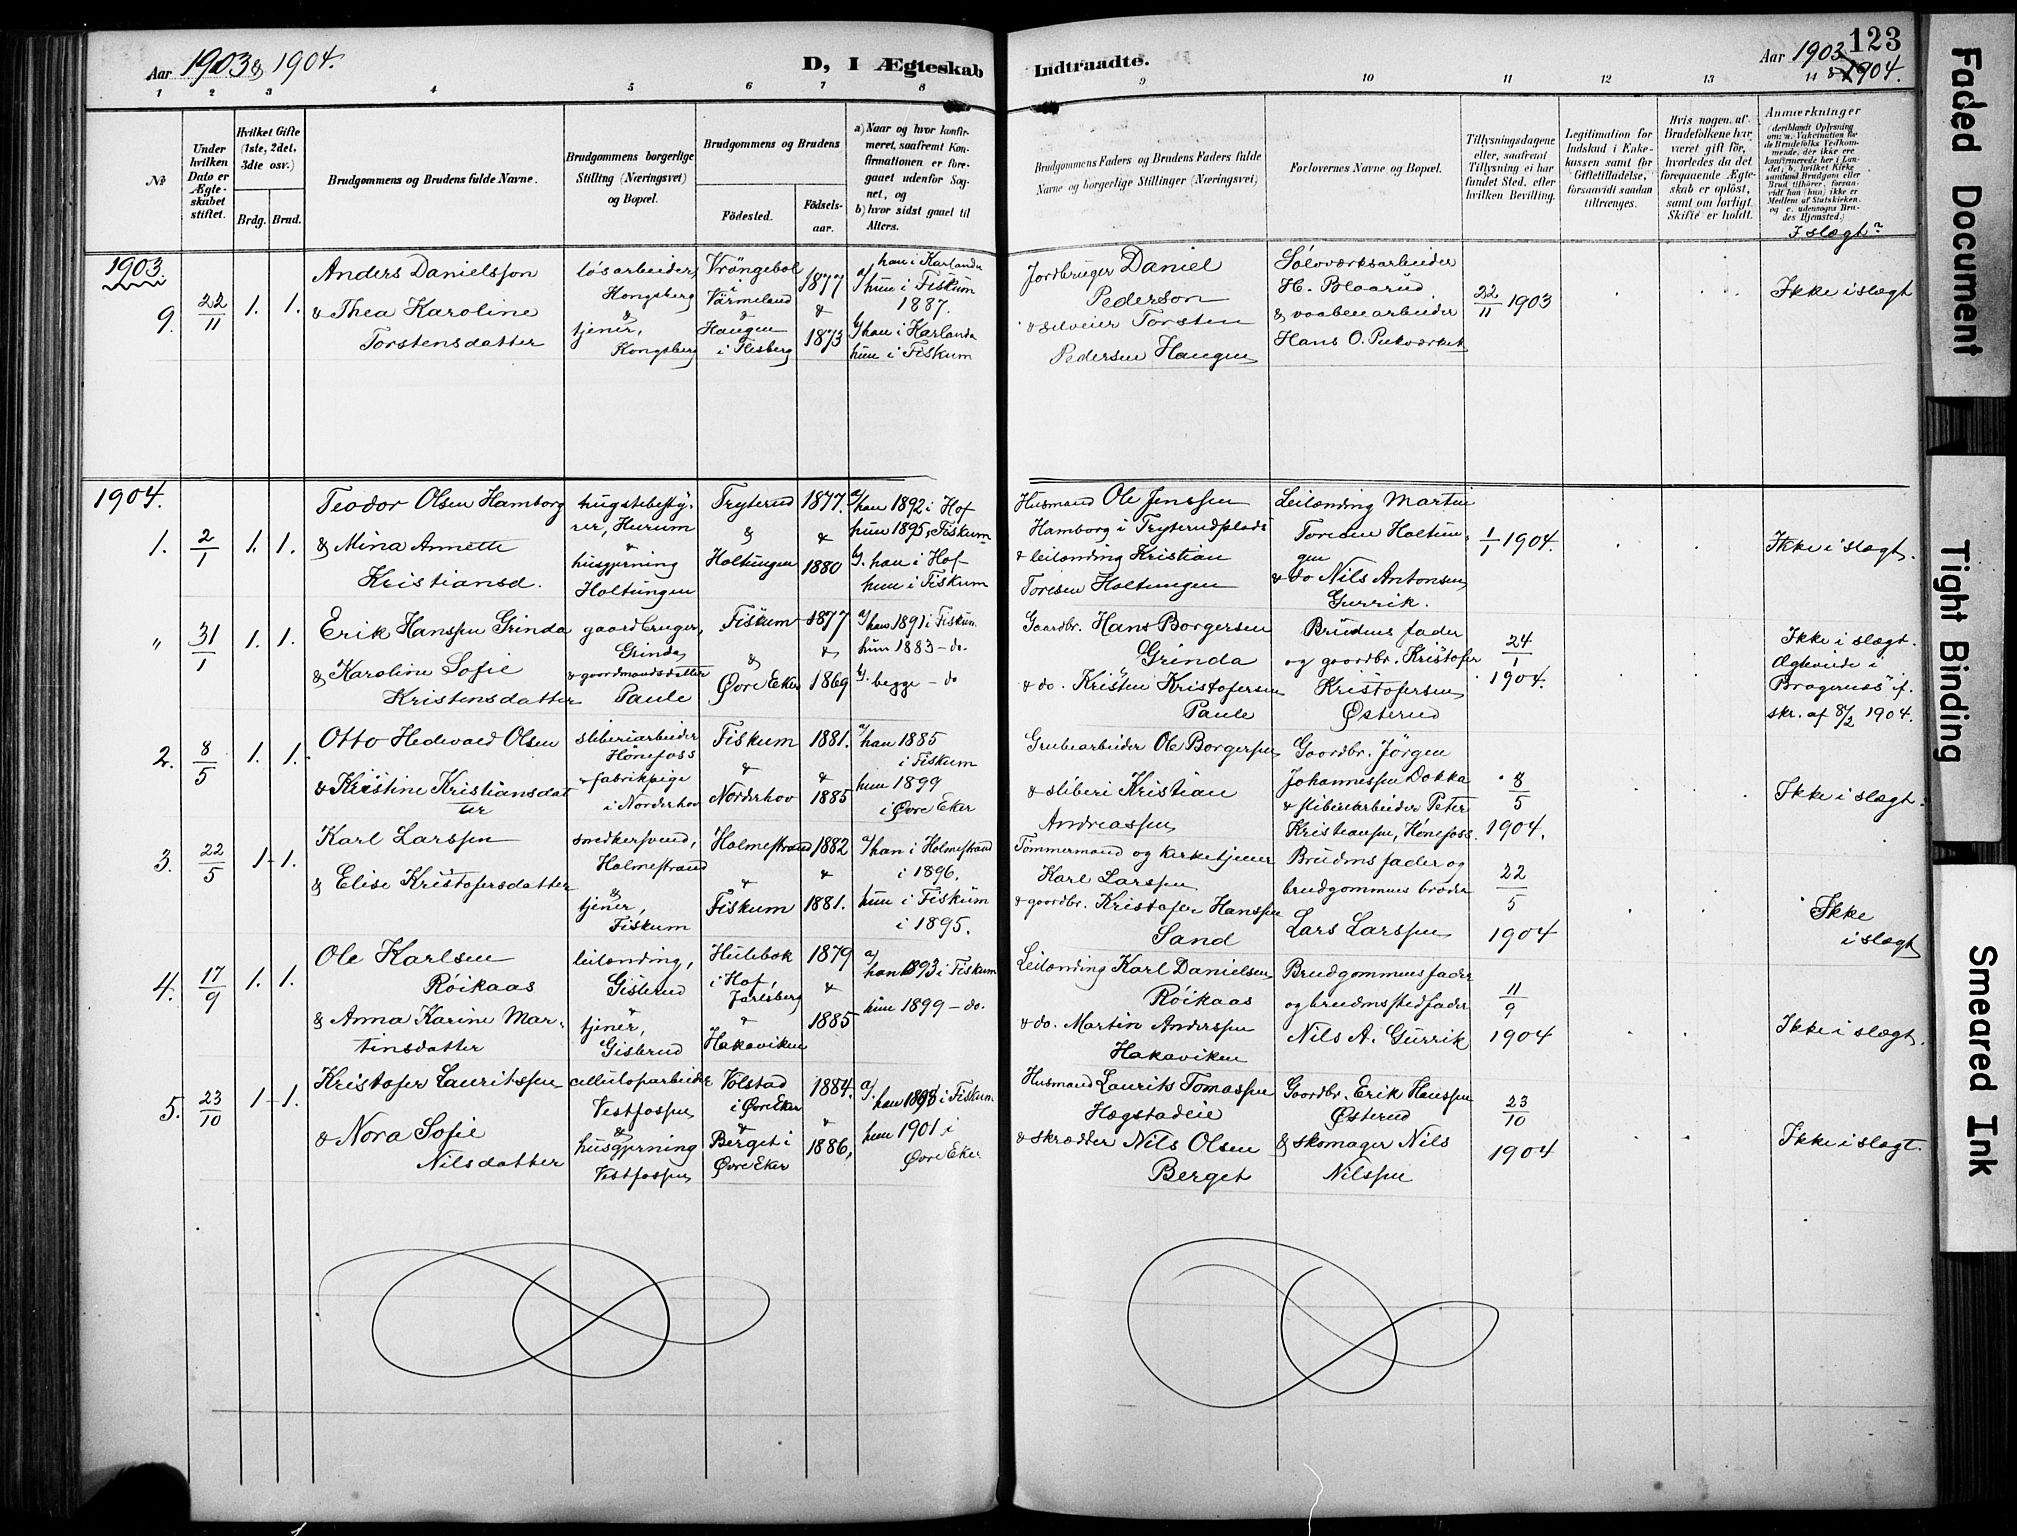 Aar 1903 & 1904.
D, I Ægteskab
1 2 3 4 5 6 7 8
№
Under hvilken Dato er Ægteskabet stiftet.
Hvilket Gifte (1ste, 2det, 3dte osv.)
Brdg. Brud.
Brudgommens og Brudens fulde Navne.
Brudgommens borgerlige Stilling (Næringsvei) og Bopæl.
Brudgommens og Brudens
Födested.
Födselsaar.
a) Naar og hvor konfirmeret, saafremt Konfirmationen er foregaaet udenför Sognet, og
b) hvor sidst gaaet til Alters.
1903.
9. 22/11 1. 1.
Anders Danielsson
& Thea Karoline
Torstensdatter
løsarbeider,
Kongsberg
&
tjener,
Kongsberg
Vrångebol
i
Värmeland
&
Haugen
i Flesberg
1877
&
1873
a/ han i Karlanda
hun i Fiskum
1887.
b/ han i Karlanda
hun i Fiskum
1904.
1. 2/1 1. 1.
Teodor Olsen Hamborg
& Mina Annette
Kristiansd.
hugstbesty-
rer, Hurum
&
husgjerning
Holtungen
Tryterud
&
Holtungen
1877.
&
1880
a/ han 1892 i Hof
hun 1895 i Fiskum
b. han i Hof
hun i Fiskum
" 31/1 1. 1.
Erik Hanssen Grinda
& Karoline Sofie
Kristensdatter
gaardbruger,
Grinda
& gaardmandsdatter
Paule
Fiskum
&
Øvre Eker
1877
&
1869
a/ han 1891 i Fiskum
hun 1883 - do.
b. begge - do
2. 8/5 1. 1.
Otto Hedevald Olsen
& Kristine Kristiansdat
ter
sliberiarbeider
Hönefoss
& fabrikpige
i Norderhov
Fiskum
&
Norderhov
1881.
&
1885
a/ han 1885
i Fiskum
hun 1899
i Øvre Eker
3. 22/5 1. 1.
Karl Larssen
& Elise Kristofersdatter
snedkersvend,
Holmestrand
&
tjener,
Fiskum
Holmestrand
&
Fiskum
1882
&
1881.
a/ han i Holmestrand
i 1896.
hun i Fiskum
i 1895.
4. 17/9 1. 1.
Ole Karlsen
Røikaas
& Anna Karine Mar-
tinsdatter
leilænding,
Gislerud
&
tjener,
Gislerud
Hulebak
i Hof,
Jarlsberg
&
Hakaviken
1879
&
1885
a/
han 1893 i Fiskum
hun 1899 - do.
5. 23/10 1. 1.
Kristofer Lauritssen
& Nora Sofie
Nilsdatter
celluloparbeider
Vestfossen
&
husgjerning
Vestfossen
Volstad
i Øvre Eker
&
Berget i
Øvre Eker
1884.
&
1886,
a/.
han 1898 i Fiskum
hun 1901 i
Øvre Eker
Indtraadte.
Aar 1903 & 1904.
123
9 10 11 12 13 14
Brudgommens Faders og Brudens Faders fulde Navne og borgerlige Stillinger (Næringsvei)
Forlovernes Navne og Bopæl.
Tillysningsdagene eller, saafremt Tillysning ei har fundet Sted, efter hvilken Bevilling.
Legitimation for Indskud i Enkekassen samt for Giftetilladelse, forsaavidt saadan tiltrænges.
Hvis nogen af Brudefolkene har været gift för, hvorledes da det foregaaende Ægteskab er oplöst, samt om lovligt Skifte er holdt.
Anmærkninger
(deriblandt Oplysning om: a. Vakcination for de Brudefolks Vedkommende, der ikke ere konfirmerede her i Landet; b. hvilket Kirkesamfund Brudgom eller Brud tilhörer, forsaavidt han (hun) ikke er Medlem af Statskirken, og c. udensogns Brudes Hjemsted.)
I slægt?
Jordbruger Daniel
Pederson
& selveier Torsten
Pedersen Haugen
Sølvværksarbeider
H. Blaarud
& vaabenarbeider
Hans O. Pukværket
22/11 1903
Ikke i slægt
Husmand Ole Jenssen
Hamborg i Tryterudplads
& leilænding Kristian
Toresen Holtungen
Leilænding Martin
Toresen Holtun-
gen
& do Nils Antonsen
Gurrik.
1/1 1904.
Ikke i slægt.
Gaardbr. Hans Borgersen
Grinda
& do. Kristen Kristofersen
Paule
Brudens fader
og gaardbr. Kristofer
Kristofersen
Østerud
24/1
1904.
Ikke i slægt.
Ægteviede i
Bragernes if.
skr. af 8/2 1904.
Grubearbeider Ole Borgersen
& sliberi Kristian
Andreassen
Gaardbr. Jörgen
Johannessen Dokka
& sliberiarbeider Peter
Kristiansen, Hönefoss.
8/5
1904.
Ikke i slægt.
Tømmermand og kirketjener
Karl Larssen
& gaardbr. Kristofer Hanssen
Sand
Brudens fader og
brudgommens broder
Lars Larssen
22/5
1904
Ikke
i slægt
Leilænding Karl Danielsen
Røikaas
& do. Martin Anderssen
Hakaviken
Brudgommens fader
og brudens stedfader
Nils A. Gurrik
11/9
1904
Ikke i slægt.
Husmand Laurits Tomassen
Hægstadeie
& skrædder Nils Olsen
Berget
Gaardbr. Erik Hanssen
Østerud
& skomager Nils
Nilssen
23/10
1904
Ikke i slægt.
Faded Document
Tight Binding
Smeared Ink